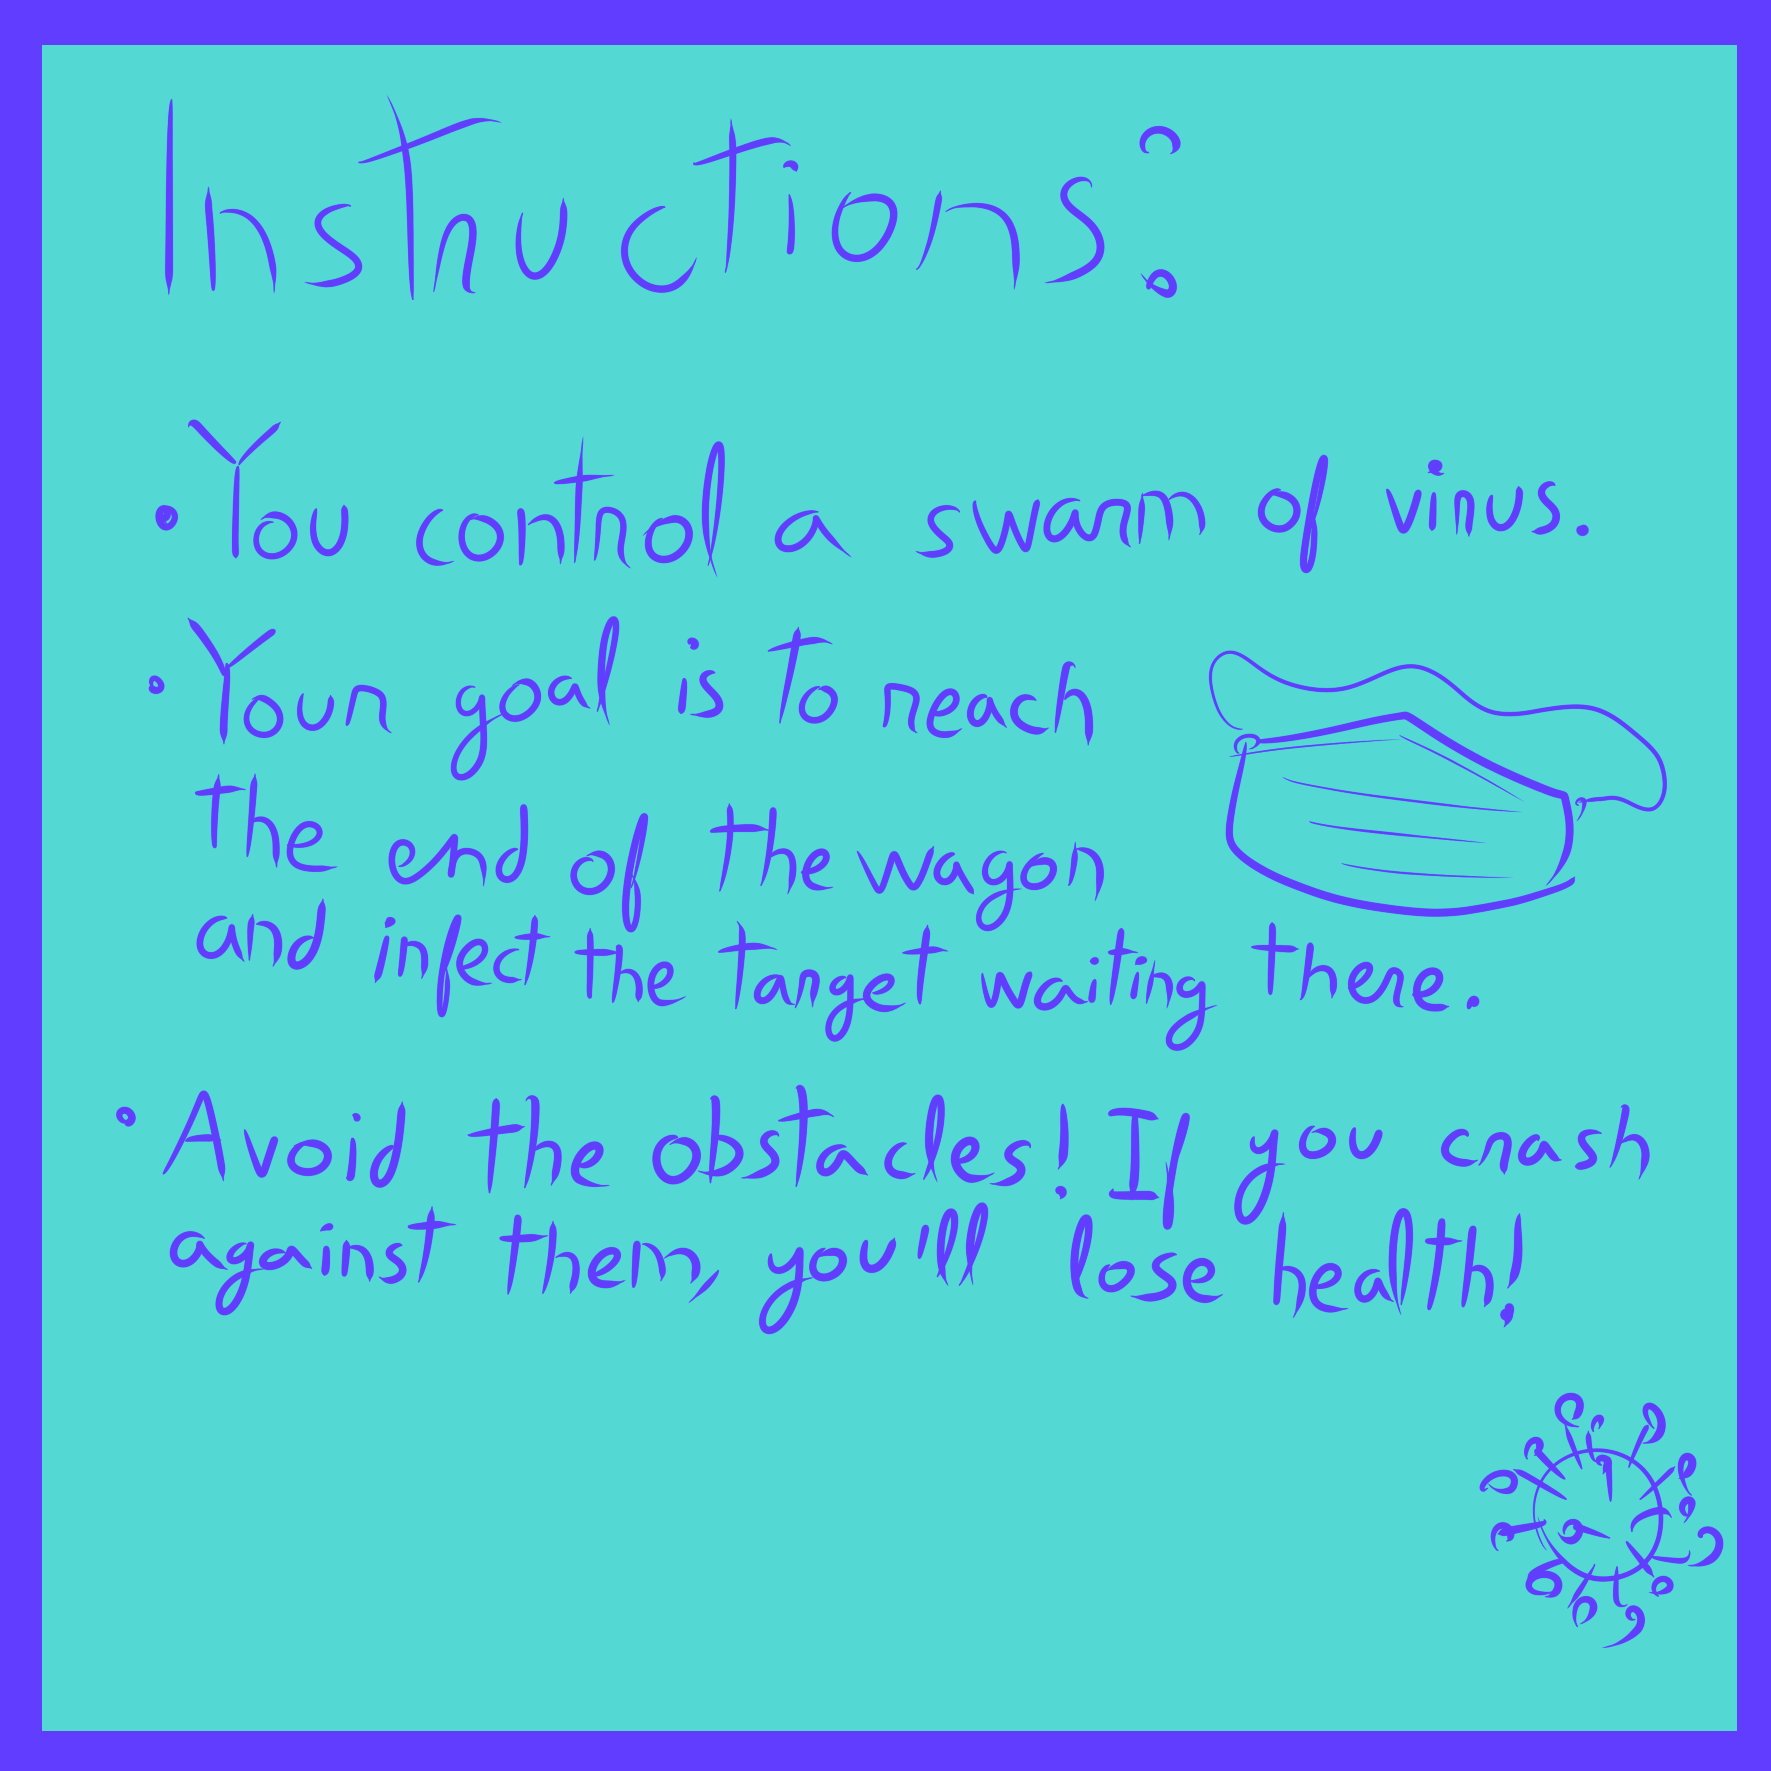 Instructions:
• You control a swarm of virus.
• Your goal is to reach
the end of the wagon
and infect the target waiting there.
• Avoid the obstacles! If you crash
against them, you'll lose health!